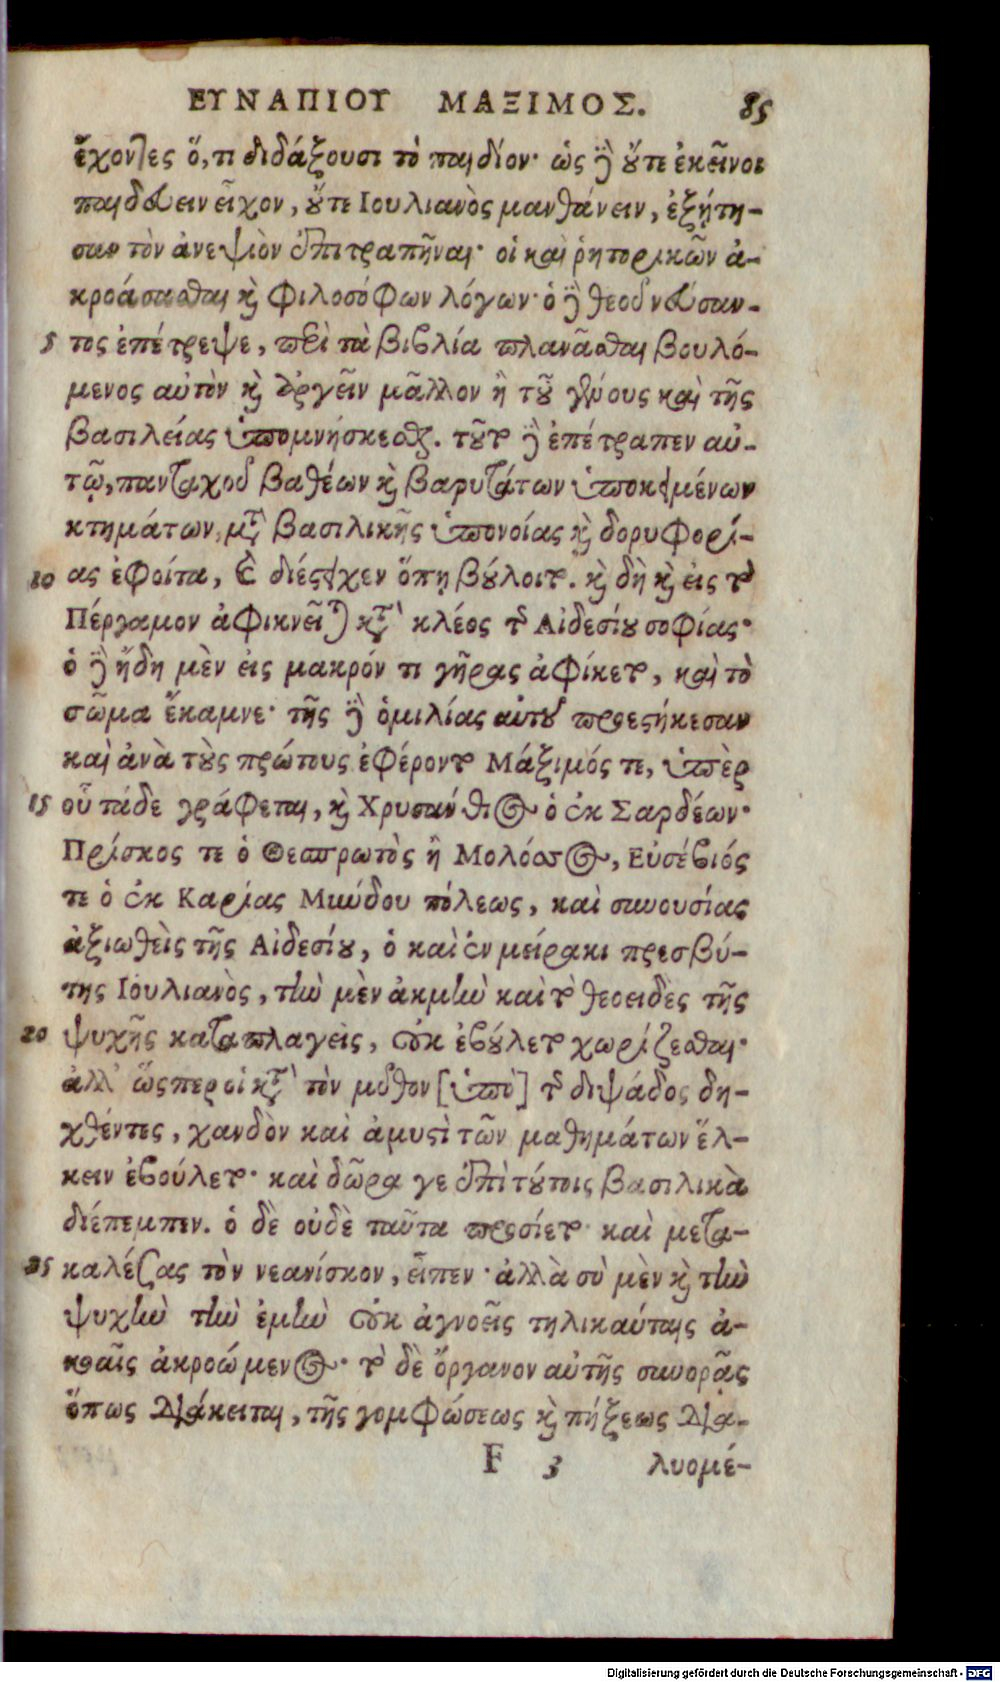 ΕΥΝΑΠΙΟΥ ΜΑΞΙΜΟΣ. 85
ἔχοντες ὅ,τι διδάξουσι τὸ παιδίον· ὡς γὰρ οὔτε ἐκεῖνοι
παιδεύειν εἶχον, οὔτε Ιουλιανὸς μανθάνειν, ἐξῄτη-
σαν τὸν ἀνεψιὸν ἐπιτραπῆναι· οἱ καὶ ῥητορικῶν ἀ-
κροάσασθαι καὶ φιλοσόφων λόγων· ὁ γὰρ θεοῦ νεύσαν-
5 τος ἐπέτρεψε, περὶ τὰ βιβλία πλανᾶσθαι βουλό-
μενος αὐτὸν καὶ ἀργεῖν μᾶλλον ἢ τοῦ γένους καὶ τῆς
βασιλείας ὑπομνήσκεσθαι. τοῦτο γὰρ ἐπέτραπεν αὐ-
τῷ, πανταχοῦ βαθέων καὶ βαρυτάτων ὑποκειμένων
κτημάτων, μετὰ βασιλικῆς ὑπονοίας καὶ δορυφορί-
10 ας ἐφοίτα, καὶ διέστειχεν ὅπῃ βούλοιτο. καὶ δὴ καὶ εἰς τὸ
Πέργαμον ἀφικνεῖται κατὰ κλέος τῆς Αἰδεσίου σοφίας·
ὁ γὰρ ἤδη μὲν εἰς μακρόν τι γῆρας ἀφίκετο, καὶ τὸ
σῶμα ἔκαμνε· τῆς γὰρ ὁμιλίας αὐτοῦ προεστήκεσαν
καὶ ἀνὰ τοὺς πρώτους ἐφέροντο Μάξιμός τε, ὑπὲρ
15 οὗ τάδε γράφεται, καὶ Χρυσάνθιος ὁ ἐκ Σαρδέων·
Πρίσκος τε ὁ Θεσπρωτὸς ἢ Μολόσσος, Εὐσέβιός
τε ὁ ἐκ Καρίας Μύνδου πόλεως, καὶ συνουσίας
ἀξιωθεὶς τῆς Αἰδεσίου, ὁ καὶ ἐν μείρακι πρεσβύ-
της Ιουλιανὸς, τὴν μὲν ἀκμὴν καὶ τὸ θεοειδὲς τῆς
20 ψυχῆς καταπλαγεὶς, οὐκ ἐβούλετο χωρίζεσθαι·
ἀλλ᾽ ὥσπερ οἱ κατὰ τὸν μῦθον [ὑπὸ] τῆς διψάδος δη-
χθέντες, χανδὸν καὶ ἀμυστὶ τῶν μαθημάτων ἕλ-
κειν ἐβούλετο· καὶ δῶρα γε ἐπὶ τούτοις βασιλικὰ
διέπεμπεν. ὁ δὲ οὐδὲ ταῦτα προσίετο· καὶ μετα-
25 καλέσας τὸν νεανίσκον, εἶπεν· ἀλλὰ σὺ μὲν καὶ τὴν
ψυχὴν τὴν ἐμὴν οὐκ ἀγνοεῖς τηλικαύταις ἀ-
κοαῖς ἀκροώμενος· τὸ δὲ ὄργανον αὐτῆς συνορᾷς
ὅπως διάκειται, τῆς γομφώσεως καὶ πήξεως δια-
F 3 λυομέ-
Digitalisierung gefördert durch die Deutsche Forschungsgemeinschaft · DFG